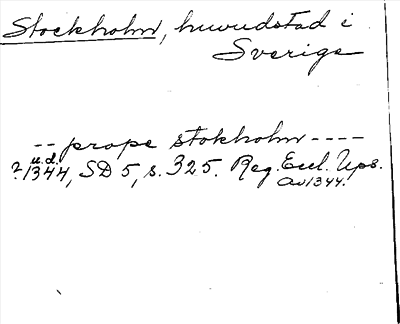 Stockholm, huvudstad i
Sverige
-- prope stokholm ----
u.d.
? 1344, SD 5, s. 325. Reg. Eccl. Ups.
av 1344.